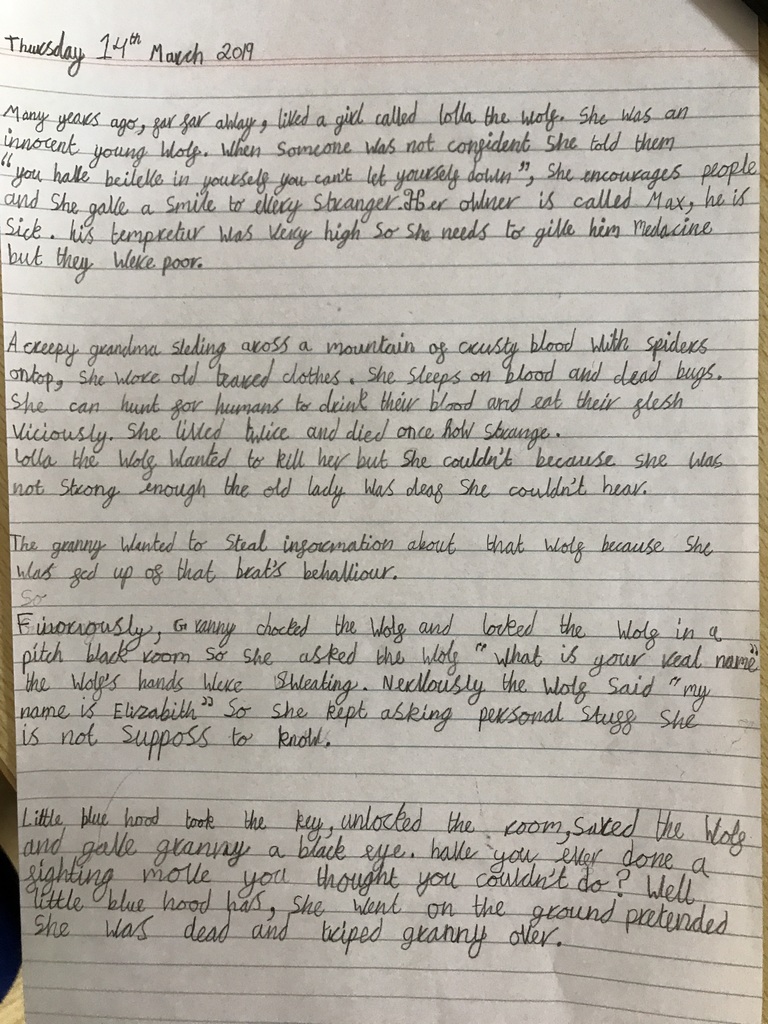 Thursday 14th March 2019
Many years ago, far far away, lived a girl called lolla the wolf. She was an
innocent young Wolf. When Someone was not confident She told them
"you have beileve in yourself you can't let yourself down", She encourages people
and She gave a Smile to every Stranger. Her owner is called Max, he is
Sick. his tempretur was very high So She needs to give him medacine
but they were poor.
A creepy grandma sleding aross a mountain of crusty blood with spiders
ontop, She wore old teared clothes. She Sleeps on blood and dead bugs.
She can hunt for humans to drink their blood and eat their flesh
Viciously. She lived twice and died once how Strange.
Lolla the Wolf Wanted to kill her but She couldn't because she was
not Strong enough the old lady Was deaf She couldn't hear.
The granny Wanted to Steal information about that Wolf because She
was fed up of that brat's behaviour.
So
Finoriously, Granny chocked the Wolf and locked the Wolf in a
pitch black room So She asked the Wolf "What is your real name"
the Wolf's hands Were Sweating. Nervously the Wolf Said "my
name is Elizabith" So She kept asking personal Stuff She
is not Supposs to know.
Little blue hood took the key, unlocked the room, Saved the Wolf
and gave granny a black eye. have you ever done a
fighting move you thought you couldn't do? Well
little blue hood has, She went on the ground pretended
She was dead and triped granny over.